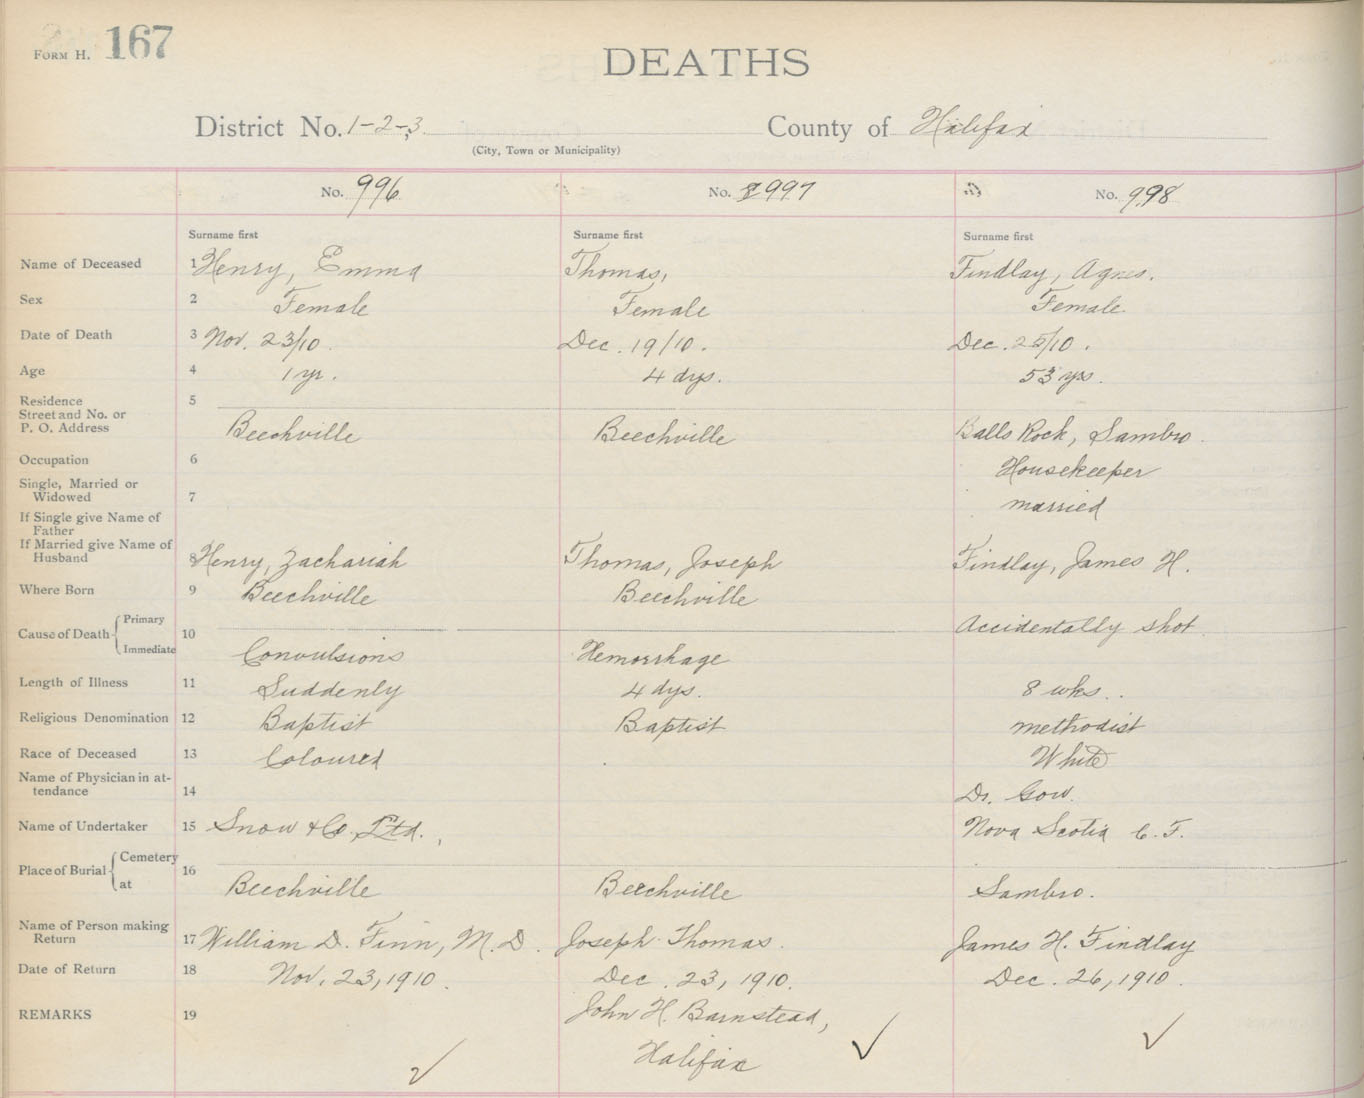 FORM H. 167
DEATHS
District No. 1-2-3
County of Halifax
(City, Town or Municipality)
No. 996
No. 997
No. 998
Surname first
Surname first
Surname first
Name of Deceased 1 Henry, Emma
Thomas,
Findlay, Agnes.
Sex 2 Female
Female
Female.
Date of Death 3 Nov. 23/10.
Dec. 19/10.
Dec. 25/10.
Age 4 1 yr.
4 dys.
53 yrs.
Residence 5
Street and No. or
P. O. Address
Beechville
Beechville
Balls Rock, Sambro.
Occupation 6
Housekeeper
Single, Married or
Widowed 7
married
If Single give Name of
Father
If Married give Name of
Husband 8 Henry, Zachariah
Thomas, Joseph
Findlay, James H.
Where Born 9 Beechville
Beechville
Cause of Death Primary
10
Immediate
Accidentally shot
Convulsions
Hemorrhage
Length of Illness 11 Suddenly
4 dys.
8 wks.
Religious Denomination 12 Baptist
Baptist
methodist
Race of Deceased 13 Coloured
White
Name of Physician in at-
tendance 14
Dr. Gow.
Name of Undertaker 15 Snow & Co. Ltd.,
Nova Scotia C. F.
Place of Burial Cemetery
16
at
Beechville
Beechville
Sambro.
Name of Person making
Return 17 William D. Finn, M. D.
Joseph Thomas.
James H. Findlay
Date of Return 18 Nov. 23, 1910.
Dec. 23, 1910.
Dec. 26, 1910.
REMARKS 19
John H. Barnstead,
Halifax